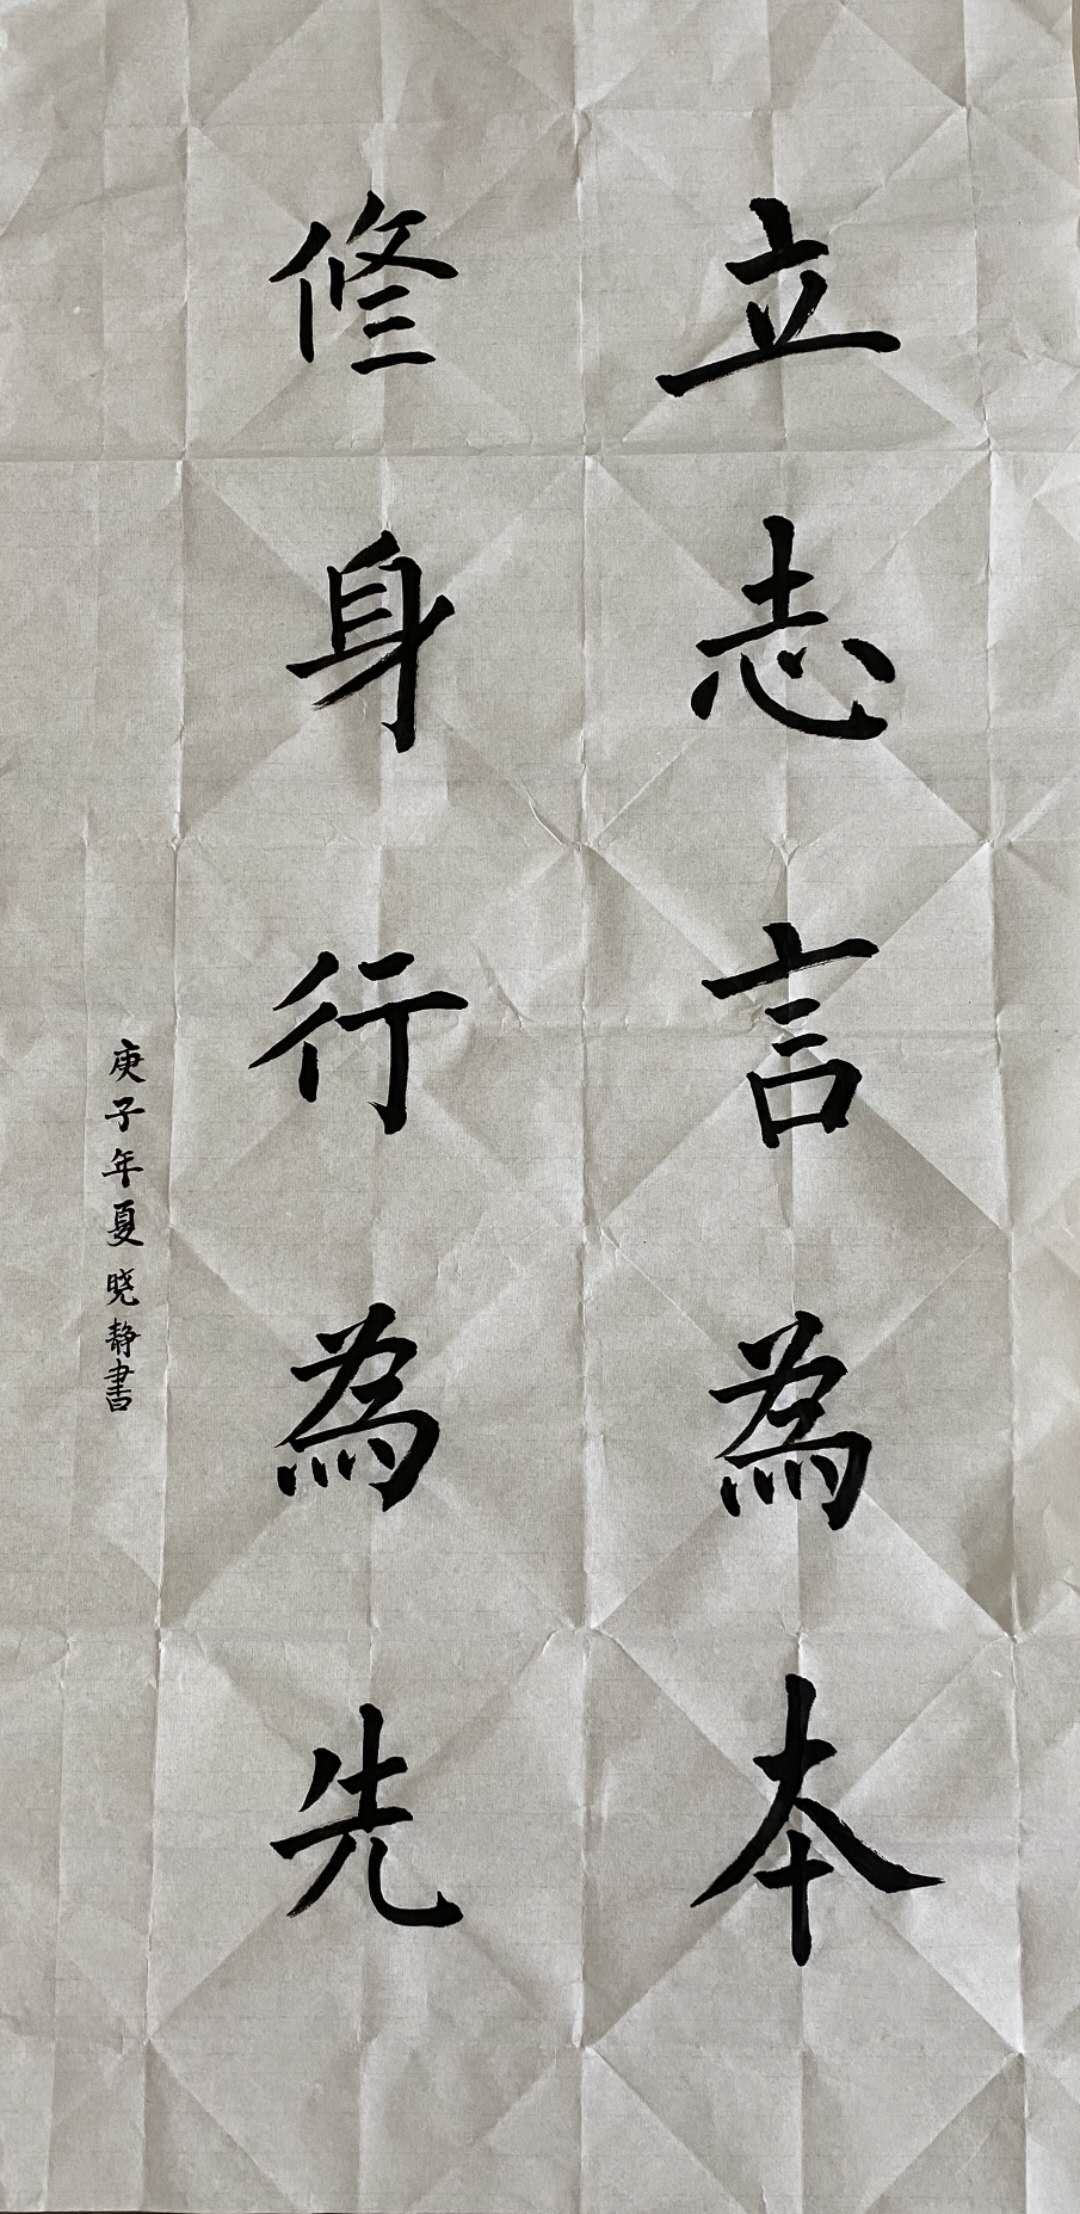 立志言為本
修身行為先
庚子年夏晓静書